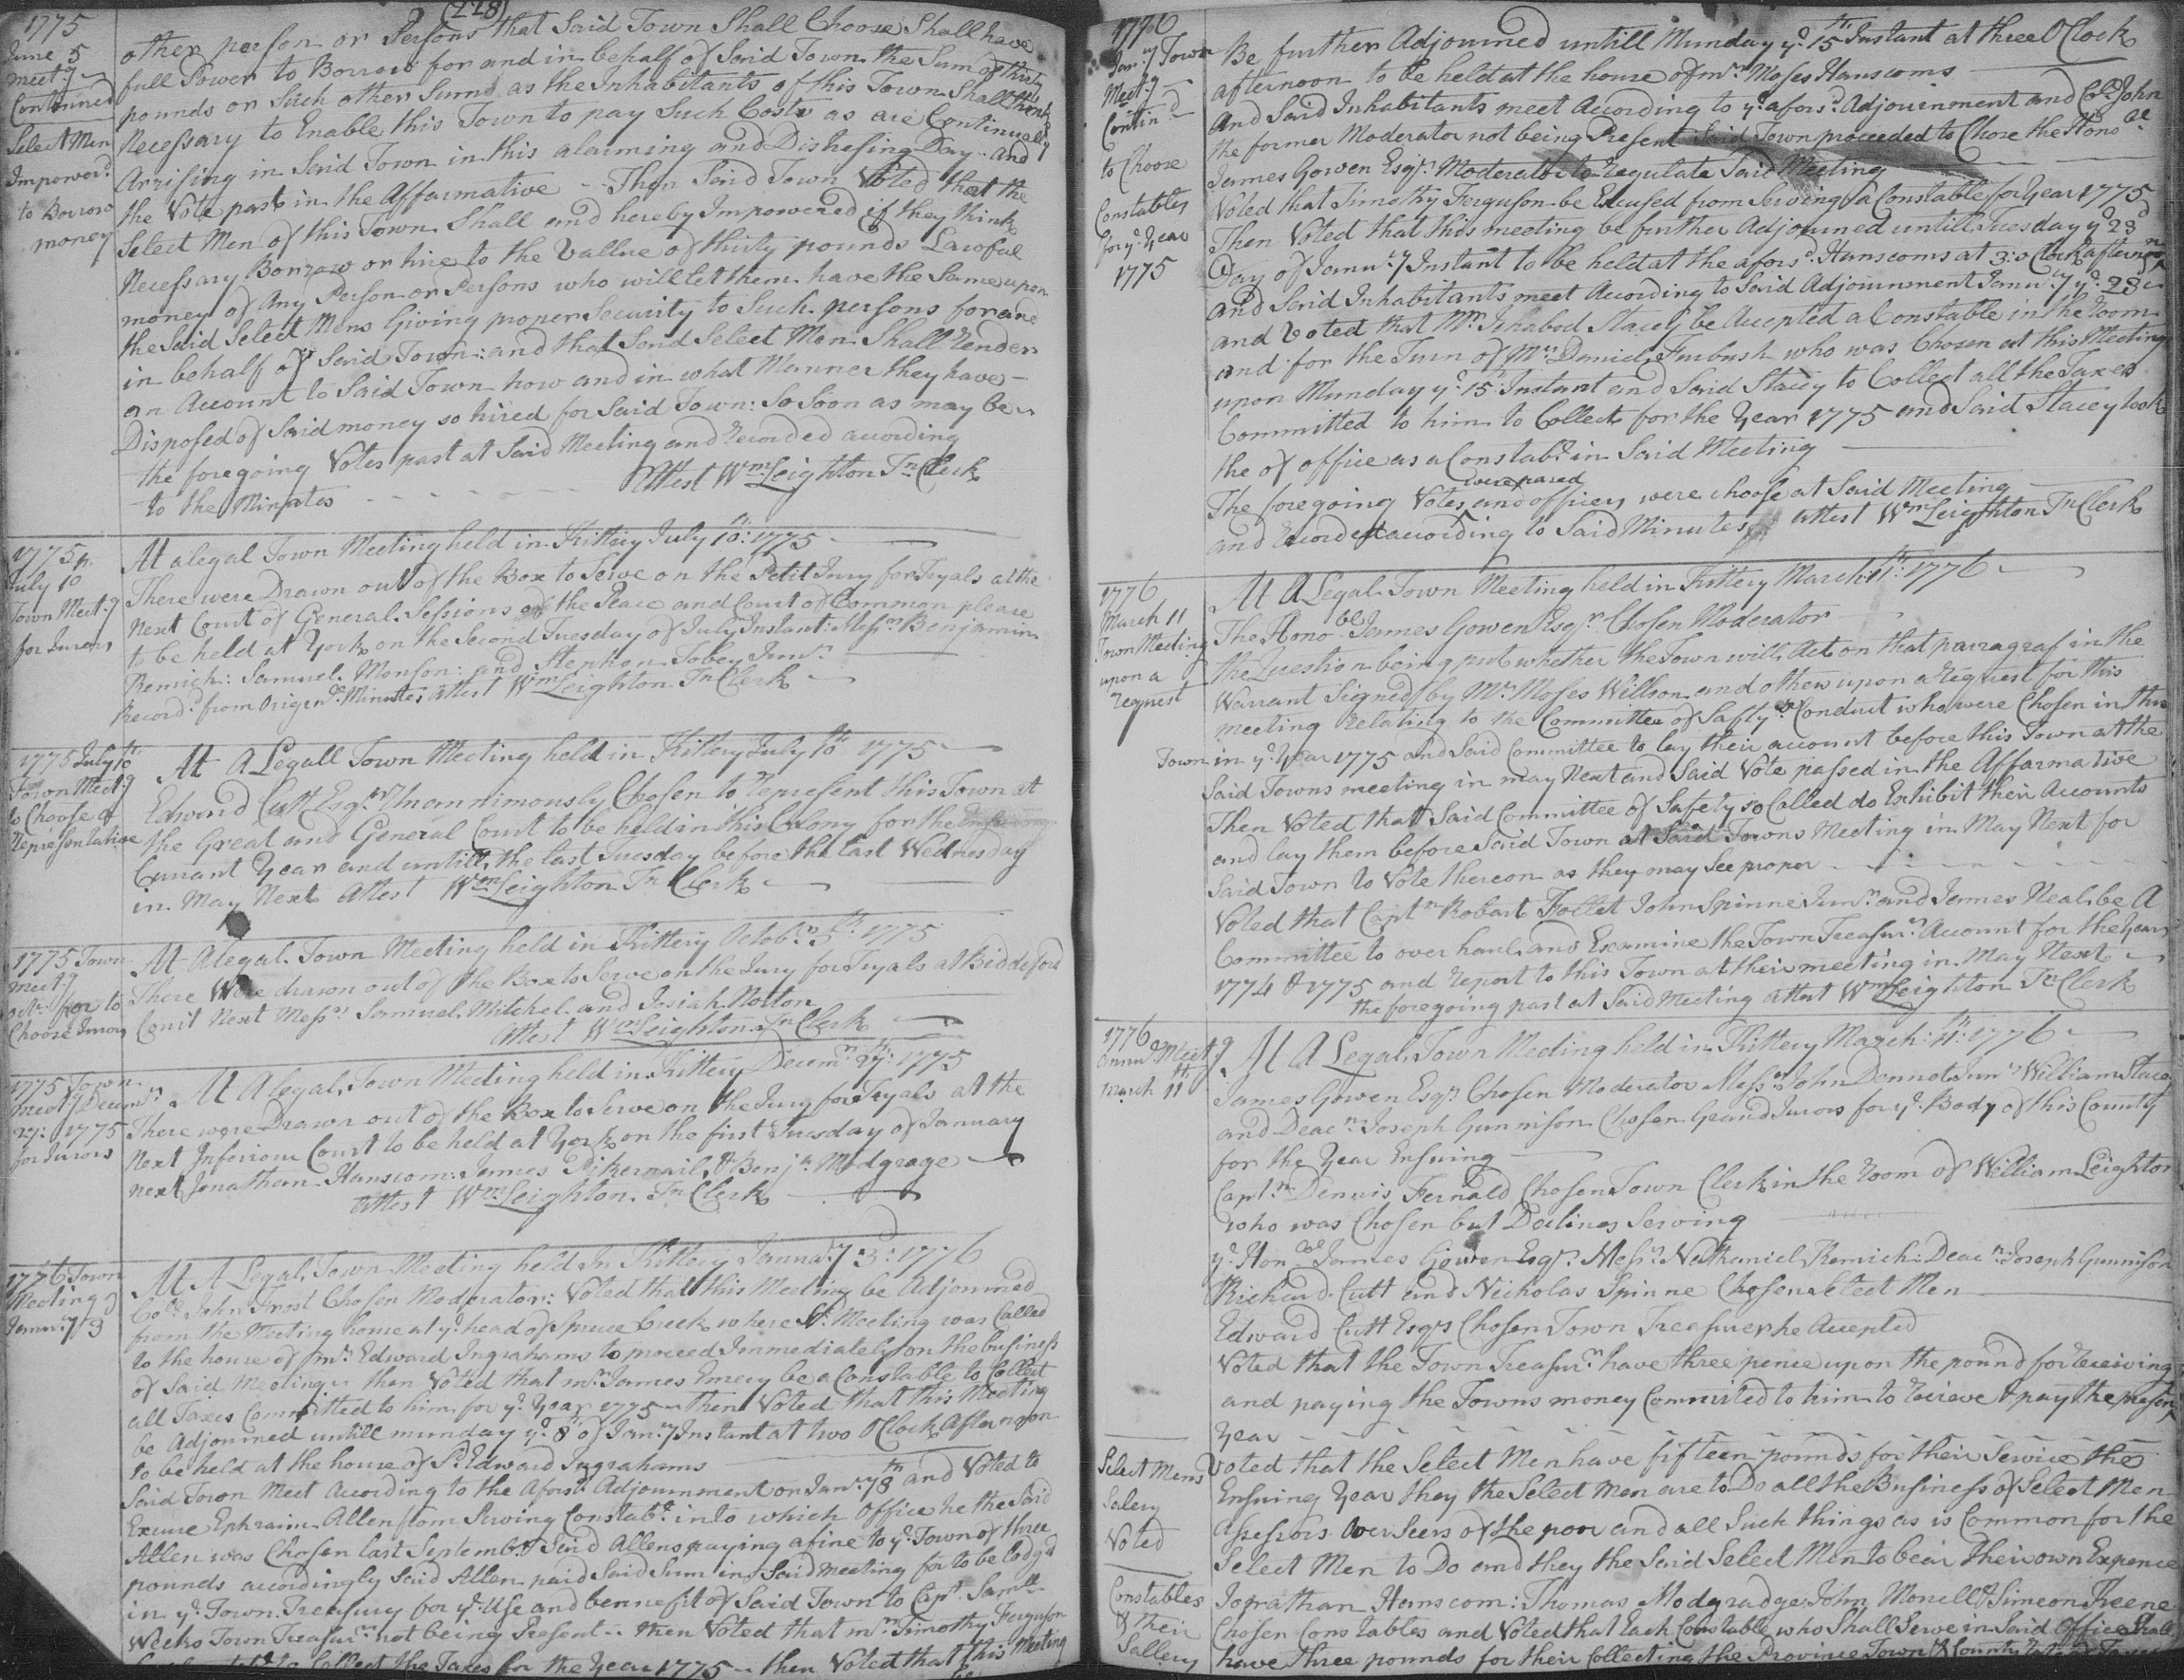 (228)
1775
June 5
meetg
Continued
Select Men
Impower'd
to Borrow
money
other person or Persons that Said Town Shall Choose Shall have
full Power to Borrow for and in behalf of Said Town the Sum of thirty
pounds or Such other Sums as the Inhabitants of this Town Shall think
Necessary to Enable this Town to pay Such Costs as are Continually
Arrising in Said Town in this alarming and Distresing Day and
the Vote past in the Affarmative Then Said Town Voted that the
Select Men of this Town Shall and hereby Impowered if they think
Necessary Borrow or hire to the Vallue of thirty pounds Lawful
money of Any Person or Persons who will let them have the Same upon
the Said Select Mens Giving proper Security to Such persons for and
in behalf of Said Town: and that Said Select Men Shall Render
an Account to Said Town how and in what Manner they have
Disposed of Said money so hired for Said Town: So Soon as may be
the foregoing Votes past at Said Meeting and Recorded according
to the Minutes Attest Wm Leighton Tn Clerk
1775
July 10
Town Meetg
for Jurors
At a legal Town Meeting held in Kittery July 10th: 1775
There were Drawn out of the Box to Serve on the Petit Jury for Tryals at the
Next Court of General Sessions of the Peace and Court of Common please
to be held at York on the Second Tuesday of July Instant: Messrs Benjamin
Remich: Samuel Monson: and Stephen Tobey Junr
Record from Origenl Minutes Attest Wm Leighton Tn Clerk
1775 July 10th
Town Meetg
to Choose a
Representative
At A Legall Town Meeting held in Kittery July 10th 1775
Edward Cutt Esqr Unannimously Chosen to Represent this Town at
the Great and General Court to be held in this Colony for the
Currant Year and untill the last Tuesday before the last Wednesday
in May Next Attest Wm Leighton Tn Clerk
1775 Town
meetg
for to
Choose Jurors
At A legal Town Meeting held in Kittery Octobr 5th 1775
There Were drawn out of the Box to Serve on the Jury for Tryals at Biddeford
Court Next Messrs Samuel Mitchel and Josiah Notton
Attest Wm Leighton Tn Clerk
1775 Town
meetg Decemr
27: 1775
for Jurors
At A legal Town Meeting held in Kittery Decemr 27th: 1775
There were Drawn out of the Box to Serve on the Jury for Tryals at the
Next Inferiour Court to be held at York on the first Tuesday of January
next Jonathan Hanscom: James Pikernail & Benja Modgrage
Attest Wm Leighton Tn Clerk
1776 Town
Meeting
Janury 3
At A Legal Town Meeting held In Kittery Januay 3d: 1776
Coll John Frost Chosen Moderator: Voted that this Meeting be Adjourned
from the Meeting house at ye head of Spruce Creek where Sd Meeting was Called
to the house of mr Edward Ingrahams to proceed Immediately on the business
of Said Meeting then Voted that mr James Emery be a Constable to Collect
all Taxes Committed to him for ye Year 1775 then Voted that this Meeting
be Adjourned untill munday ye 8th of Janry Instant at two OClock Afternoon
to be held at the house of Sd Edward Ingrahams
Said Town Meet According to the Aforsd Adjournment on Janry 8th and Voted to
Excuse Ephraim Allen from Serving Constable into which Office he the Said
Allen was Chosen last September Said Allens paying a fine to ye Town of three
pounds accordingly Said Allen paid Said Sum in Said Meeting for to be lodgd
in ye Town Treasury for ye Use and bennefit of Said Town to Capt Samll
Weeks Town Treasurr not being Present then Voted that mr Timothy Ferguson
to Collect the Taxes for the Year 1775 then Voted that this Meeting
1776
Janry Town
Meetg
Contind
to Choose
Constables
for ye Year
1775
Be further Adjourned untill Munday ye 15th Instant at three OClock
afternoon to be held at the house of mr Moses Hanscoms
And Said Inhabitants meet According to ye aforsd Adjournment and Coll John
the former Moderator not being Present Said Town proceeded to Chose the Honoble
James Gowen Esqr Moderator to Regulate Said Meeting
Voted that Timothy Ferguson be Excused from Serving a Constable for Year 1775
Then Voted that this meeting be further Adjourned untill Tuesday ye 23d
Day of Janury Instant to be held at the aforsd Hanscoms at 3:o Clock afternoon
and Said Inhabitants meet According to Said Adjournment Janury ye 23d
and Voted that Mr Ichabod Stacey be Accepted a Constable in the Room
and for the Turn of Mr Daniel Furbush who was Chosen at this Meeting
upon Munday ye 15th Instant and Said Stacey to Collect all the Taxes
Committed to him to Collect for the Year 1775 and Said Stacey took
the of office as a Constable in Said Meeting
were passed
The foregoing Votes and officers were choose at Said Meeting
and Recorded according to Said Minutes Attest Wm Leighton Tn Clerk
1776
March 11
Town Meeting
upon a
request
At A Legal Town Meeting held in Kittery March: 11th: 1776
The Honoble James Gowen Esqr Chosen Moderator
the Question being put whether the Town will Act on that parragraf in the
Warrant Signed by Mr Moses Willson and others upon a Request for this
meeting Relating to the Committee of Safty Conduct who were Chosen in this
Town in ye Year 1775 and Said Committee to lay their account before this Town at the
Said Towns meeting in may Next and Said Vote passed in the Affarmative
Then Voted that Said Committee of Safety so Called do Exhibit their Accounts
and lay them before Said Town at Said Towns Meeting in May Next for
Said Town to Vote thereon as they may See proper
Voted that Captn Robart Follet John Spinne Junr and James Neal be A
Committee to over haul and Examine the Town Treasurs Account for the Years
1774 & 1775 and report to this Town at their meeting in May Next
the foregoing past at Said Meeting Attest Wm Leighton Tn Clerk
1776
Annul Meetg
March 11th
At A Legal Town Meeting held in Kittery March: 11th: 1776
James Gowen Esqr Chosen Moderator Messrs John Dennet Junr William Stacey
and Deacn Joseph Gunnison Chosen Grand Jurors for ye Body of this County
for the Year Ensuing
Captn Dennis Fernald Chosen Town Clerk in the Room of William Leighton
who was Chosen but Declines Serving
ye Honble James Gowen Esqr Messrs Nathaniel Remich: Deacn: Joseph Gunnison
Richard Cutt and Nicholas Spinne Chosen Select Men
Edward Cutt Esqr Chosen Town Treasurer he Accepted
Voted that the Town Treasurr have three pence upon the pound for receiving
and paying the Towns money Commited to him to Recieve & pay the presen
Year
Select Mens
Salery
Voted
Voted that the Select Men have fifteen pounds for their Service the
Ensuing Year they the Select Men are to Do all the Business of Select Men
Assessors Over Seers of the poor and all Such things as is Common for the
Select Men to Do and they the Said Select Men to bear their own Expence
Constables
& their
Sallery
Jonathan Hanscom: Thomas Modgradge John Morrell & Simeon Freene
Chosen Constables and Voted that Each Constable who Shall Serve in Said Office Shall
have three pounds for their Collecting the Province Town & County